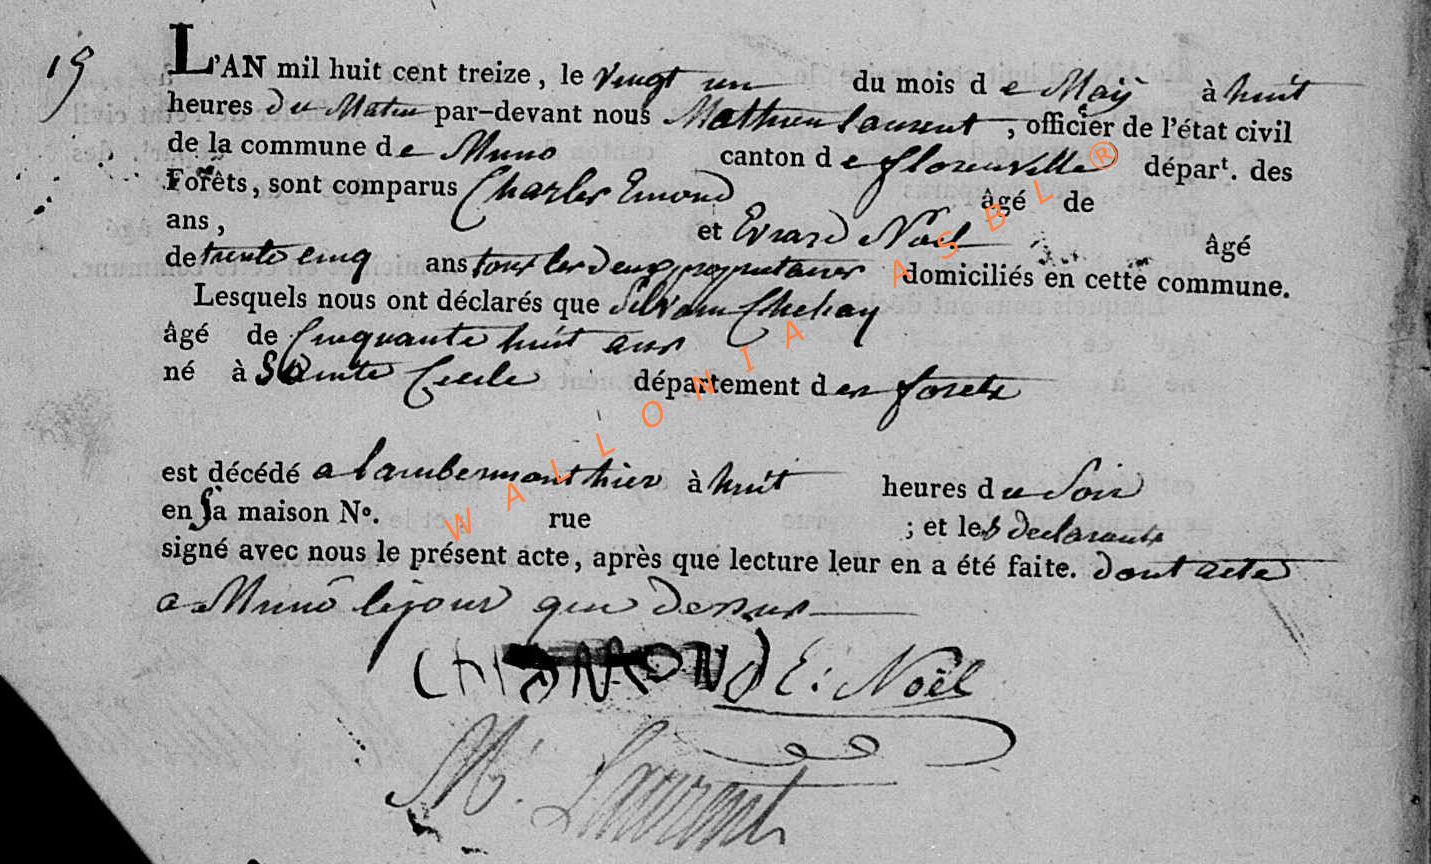 19
L'AN mil huit cent treize, le vingt un du mois d e Maÿ à huit
heures du Matin par-devant nous Mathieu Laurent, officier de l'état civil
de la commune de Muno canton d e florenville départ. des
Forêts, sont comparus Charles Emond âgé de
ans, et Evrard Noël âgé
de trente cinq ans tous les deux proprietaires domiciliés en cette commune.
Lesquels nous ont déclarés que Silvain
âgé de Cinquante huit ans
né à Sainte Cecile département d es forets
est décédé a Lambermont hier à huit heures du Soir
en Sa maison N°. rue ; et les declarants
signé avec nous le présent acte, après que lecture leur en a été faite. Dont acte
a Muno le jour que dessus
E: Noël
M. Laurent
WALLONIA ASBL ®